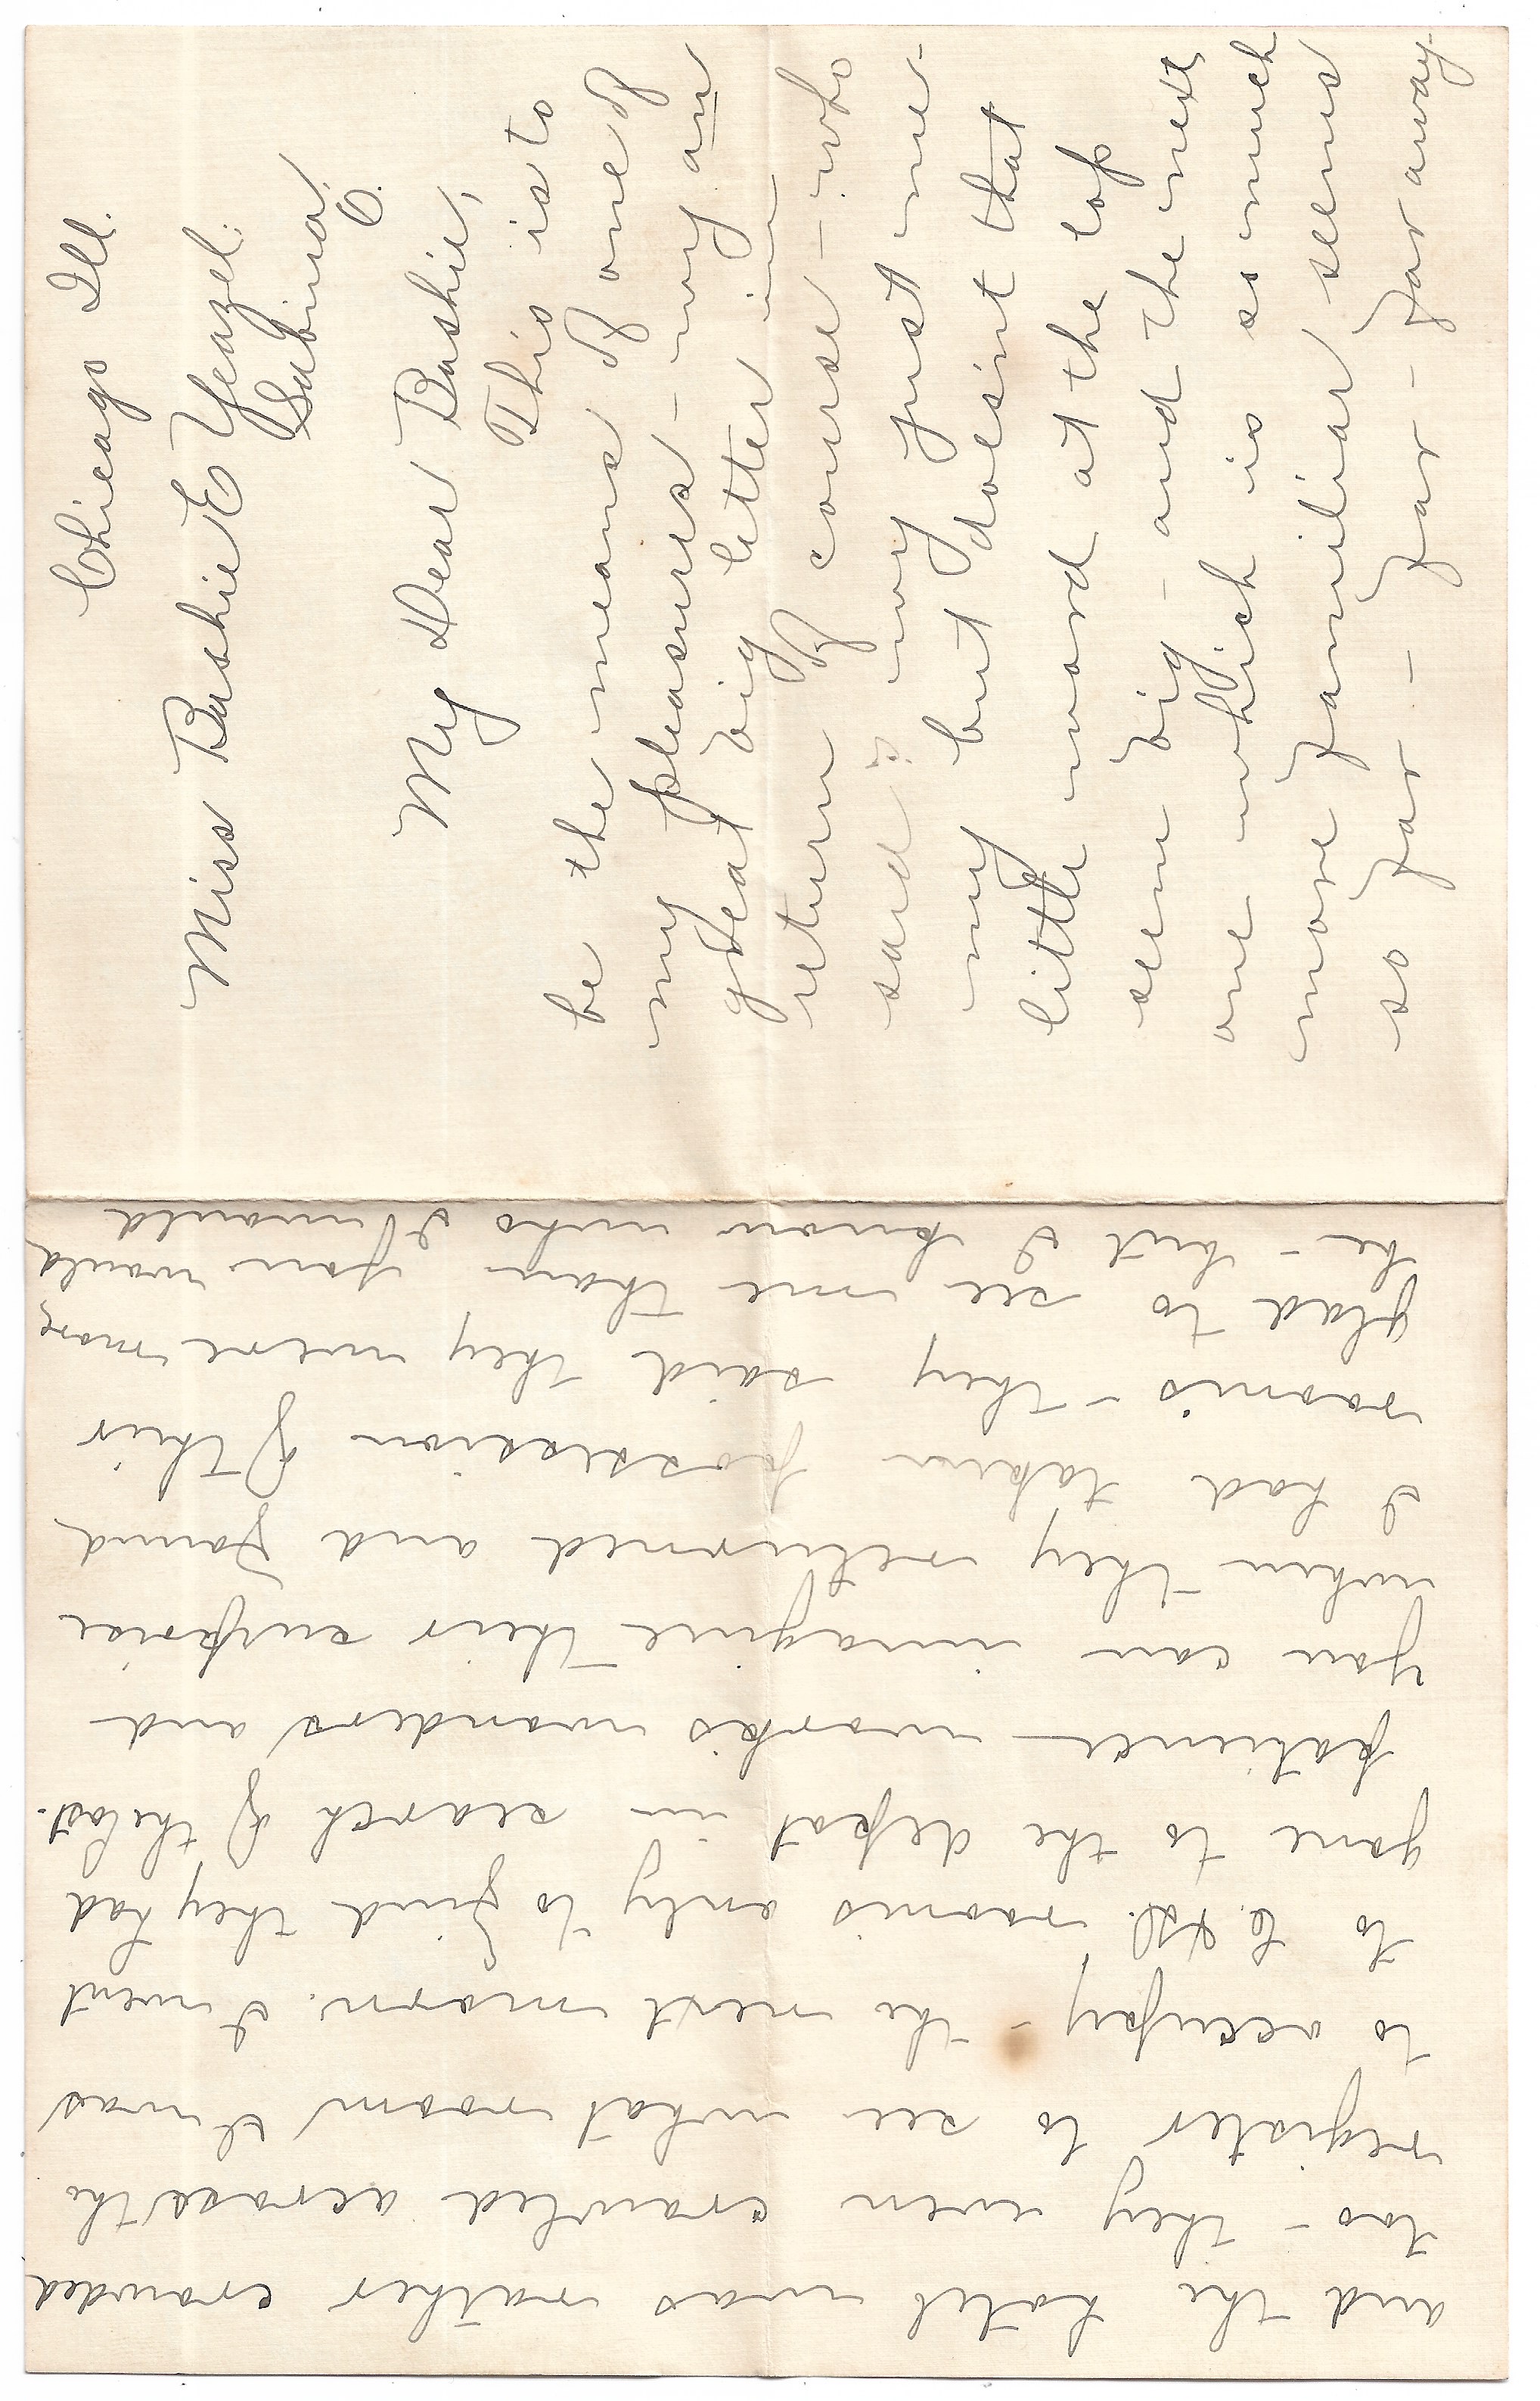 Chicago Ill.
Miss Bashie E Yeazel.
Sabina,
O.
My Dear Bashie,
This is to
be the means of one of
my pleasures - my an
great big letter in
return of course - who
said :: my just me -
my but doesint that
little word at the top
seem big - and the next
one which is so much
more familiar seems
so far - far - far away -
and the hotel was rather crowded
too - they even crawled across the
register to see what room I was
to occupy - the next morn. I went
to C. & H. rooms only to find they had
gone to the depot in search of the lost.
patience works wonders and
you can imagine their surprise
when they returned and found
I had taken possession of their
rooms - they said they were more
glad to see me than you would
be - but I know who I would